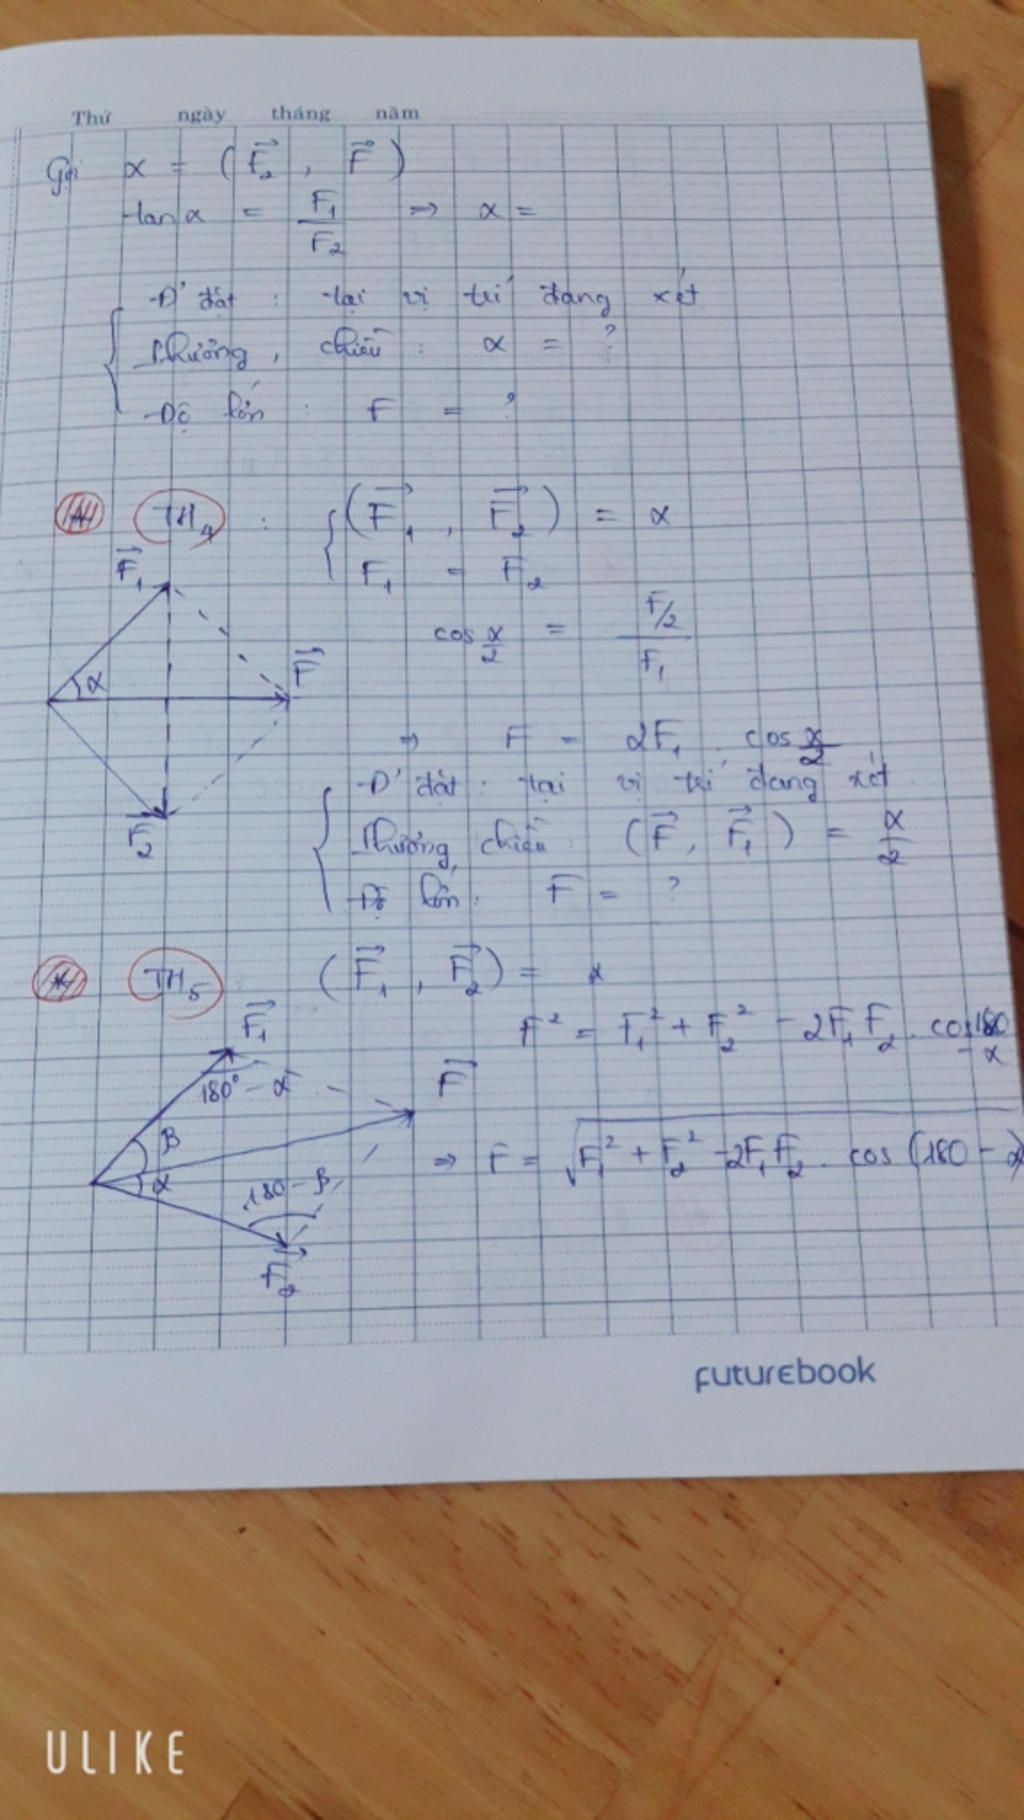 Thứ ngày tháng năm
Gọi α = (F₂⃗ , F⃗)
tan α = F₁/F₂ => α =
Đ' đặt : tại vị trí đang xét
Phương, chiều : α = ?
Độ lớn : F = ?
TH₄ : (F₁⃗ , F₂⃗) = α
F₁ = F₂
F₁⃗
cos α/2 = F/2 / F₁
F⃗
α
=> F = 2F₁ . cos α/2
Đ' đặt : tại vị trí đang xét
F₂⃗
Phương, chiều : (F⃗, F₁⃗) = α/2
Độ lớn : F = ?
TH₅ : (F₁⃗ , F₂⃗) = α
F₁⃗
F² = F₁² + F₂² - 2F₁F₂ . cos 180 - α
180° - α
F⃗
β
=> F = √F₁² + F₂² - 2F₁F₂ . cos (180 - α)
α
180 - β
F₂⃗
futurebook
ULIKE